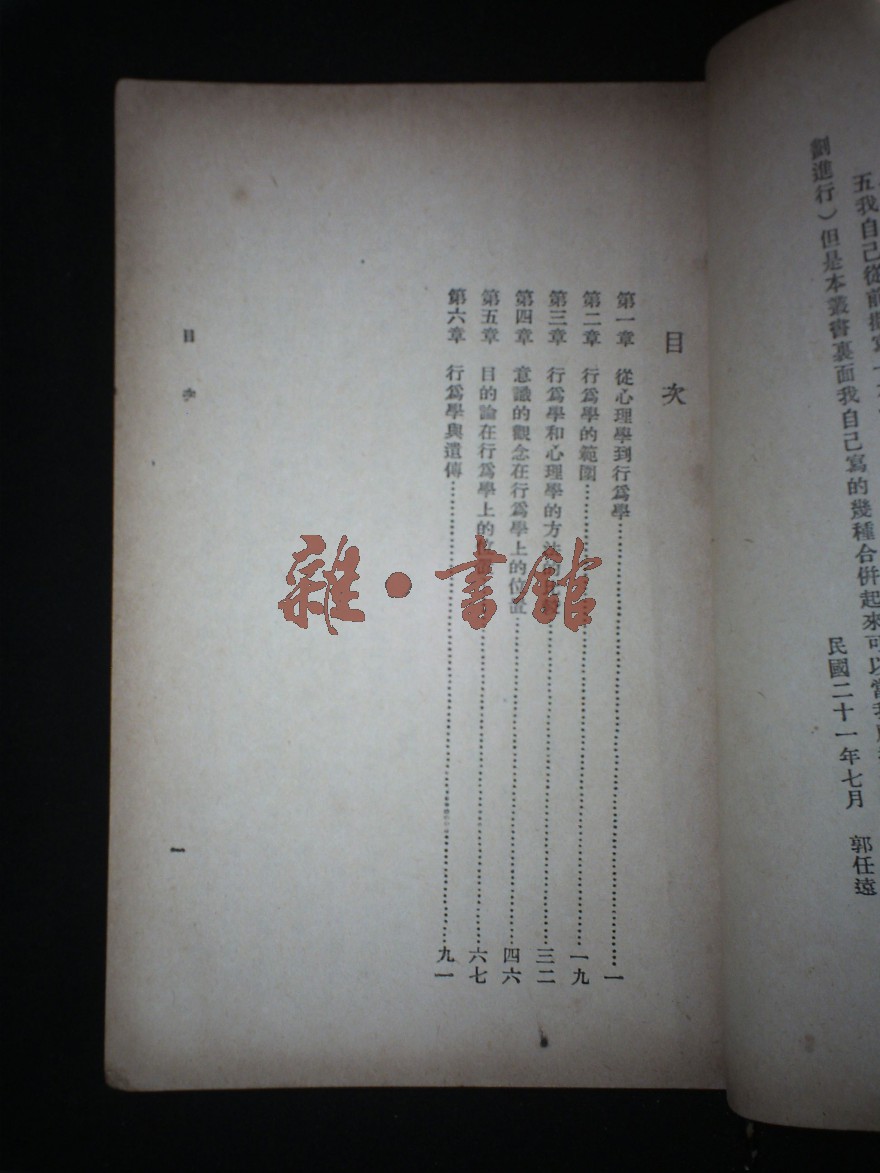 五我自己從前
劃進行）但是本叢書裏面我自己寫的幾種合併起來可以當
民國二十一年七月 郭任遠
目次
第一章 從心理學到行爲學……一
第二章 行爲學的範圍……一九
第三章 行爲學和心理學的方法的……三二
第四章 意識的觀念在行爲學上的位置……四六
第五章 目的論在行爲學上的位置……六七
第六章 行爲學與遺傳……九一
目次
一
雜·書館